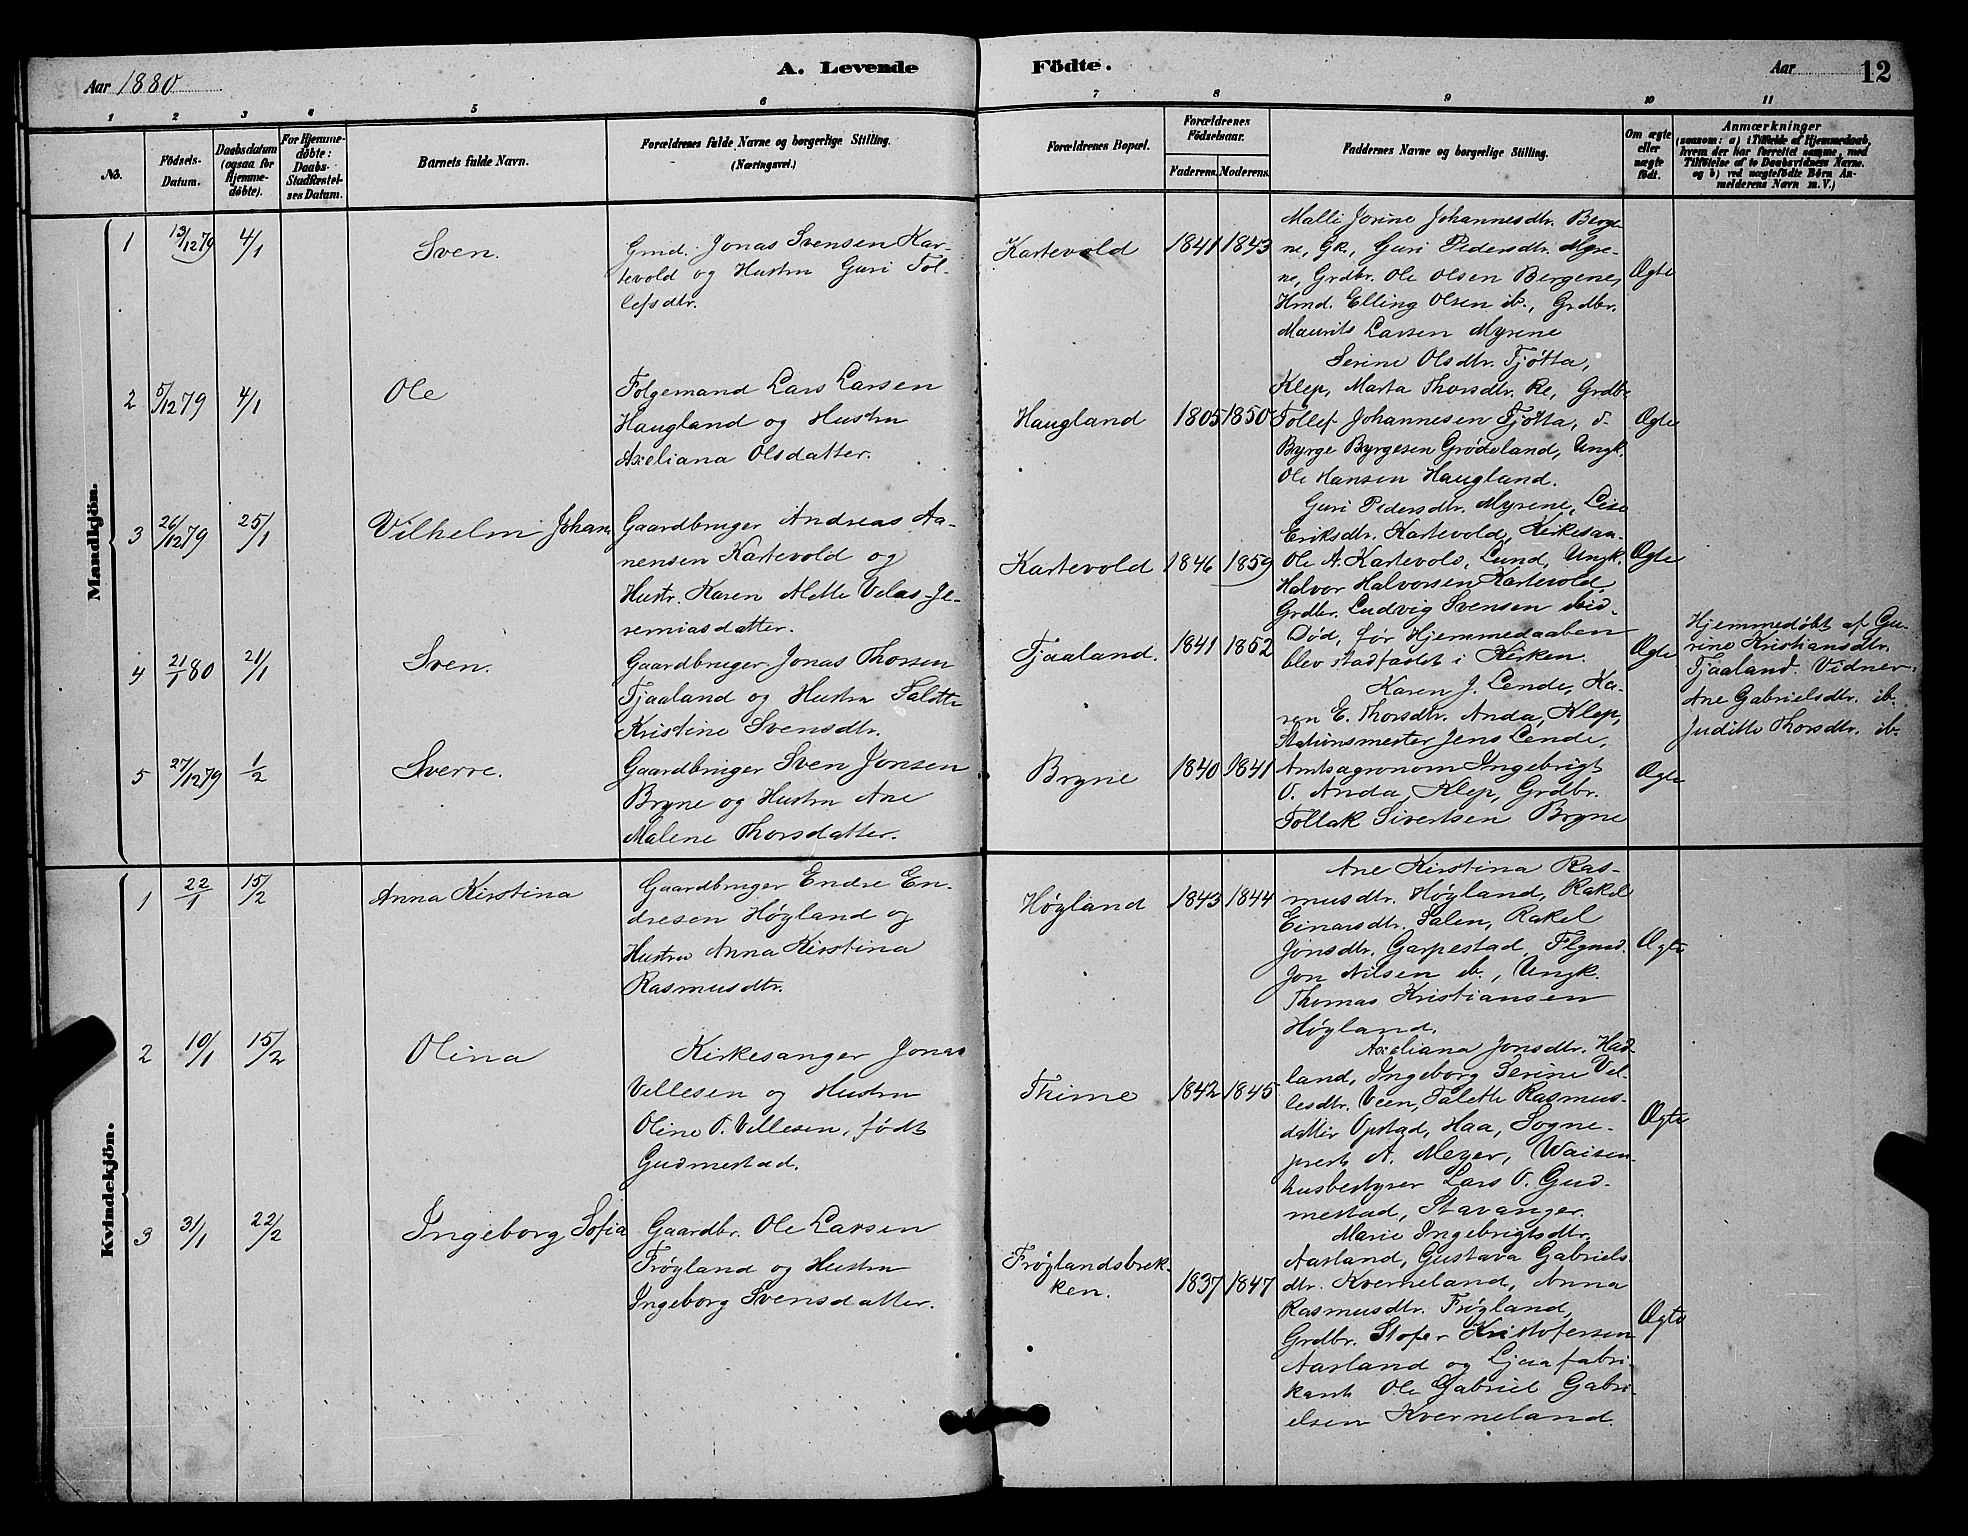 Aar 1880
A. Levende Födte.
Aar
12
1 2 3 4 5 6 7 8 9 10 11
No.
Födsels-
Datum.
Daabsdatum
(ogsaa for
Hjemme-
döbte).
For Hjemme-
döbte:
Daabs-
Stadfæstel-
ses Datum.
Barnets fulde Navn.
Forældrenes fulde Navne og borgerlige Stilling.
(Næringsvei.)
Forældrenes Bopæl.
Forældrenes
Födselsaar.
Faderens. Moderens.
Faddernes Navne og borgerlige Stilling.
Om ægte
eller
uægte
födt.
Anmærkninger
(saasom: a) i Tilfælde af Hjemmedaab,
hvem der har forrettet samme, med
Tilföielse af to Daabsvidners Navne.
og b) ved uægtefödte Börn An-
melderens Navn m. V.)
Mandkjön.
1 13/12 79 4/1 Sven.
Grmd. Jonas Svensen Kar-
tevold og Hustru Guri Tol-
lefsdtr.
Kartevold 1841 1843
Malli Jorine Johannesdtr. Berge-
ne, Gk., Guri Pedersdtr. Myre-
ne, Grdbr. Ole Olsen Bergene,
Hmd. Elling Olsen ib., Grdbr.
Maurits Larsen Myrene
Ægte
2 5/12 79 4/1 Ole
Folgemand Lars Larsen
Haugland og Hustru
Axeliana Olsdatter.
Haugland 1805 1850
Serine Olsdtr. Tjøtta,
Klep, Marta Thorsdtr. Re, Grdbr.
Tollef Johannesen Tjøtta, d.
Byrge Byrgesen Grødeland, Ungk.
Ole Hansen Haugland.
Ægte
3 26/12 79 25/1 Vilhelm Johan
Gaardbruger Andreas Aa-
nensen Kartevold og
Hustr. Karen Alette Velas Je-
remiasdatter.
Kartevold 1846 1859
Guri Pedersdtr. Myrene, Lise
Eriksdtr. Kartevold, Kirkesan.
Ole A. Kartevold, Lund, Ungk.
Halvor Halvorsen Kartevold,
Grdbr. Ludvig Svensen ibid.
Ægte
4 21/1 80 21/1 Sven.
Gaardbruger Jonas Thorsen
Tjaaland og Hustru Salette
Kristine Svensdtr.
Tjaaland. 1841 1852
Død, før Hjemmedaaben
blev stadfæstet i Kirken.
Ægte
Hjemmedøbt af Gu-
rine Kristiansdtr.
Tjaaland. Vidner
Ane Gabrielsdtr. ib.
Juditte Thorsdtr. ib.
5 27/12 79 1/2 Sverre.
Gaardbruger Sven Jonsen
Bryne og Hustru Ane
Malene Thorsdatter.
Bryne 1840 1841
Karen J. Lende, Ka-
ren E. Thorsdtr. Anda, Klep,
Stationsmester Jens Lende,
Amtsagronom Ingebrigt
O. Anda, Klep, Grdbr.
Tollak Sivertsen Bryne
Ægte
Kvindekjön.
1 22/1 15/2 Anna Kirstina
Gaardbruger Endre En-
dresen Høyland og
Hustru Anna Kirstina
Rasmusdtr.
Høyland 1843 1844
Ane Kirstina Ras-
musdtr. Høyland, Rakel
Einarsdtr. Salen, Rakel
Jonsdtr. Garpestad, Flgmd.
Jon Nilsen ib., Ungk.
Thomas Kristiansen
Høyland.
Ægte
2 10/1 15/2 Olina
Kirkesanger Jonas
Vellesen og Hustru
Oline O. Vellesen, født
Gudmestad.
Thime 1842 1845
Axeliana Jonsdtr. Had-
land, Ingeborg Serine Vel-
lesdtr. Veen, Talette Rasmus-
datter Opstad, Haa, Sogne-
prest A. Meyer, Waisen-
husbestyrer Lars O. Gud-
mestad, Stavanger.
Ægte
3 31/1 22/2 Ingeborg Sofia
Gaardbr. Ole Larsen
Frøyland og Hustru
Ingeborg Svensdatter.
Frøylandsbrek-
ken. 1837 1847
Marie Ingebrigtsdtr.
Aarland, Gustava Gabriels-
dtr. Kverneland, Anna
Rasmusdtr. Frøyland,
Grdbr. Stofer Kristofersen
Aarland og Ljaafabri-
kant Ole Gabriel Gabri-
elsen Kverneland.
Ægte